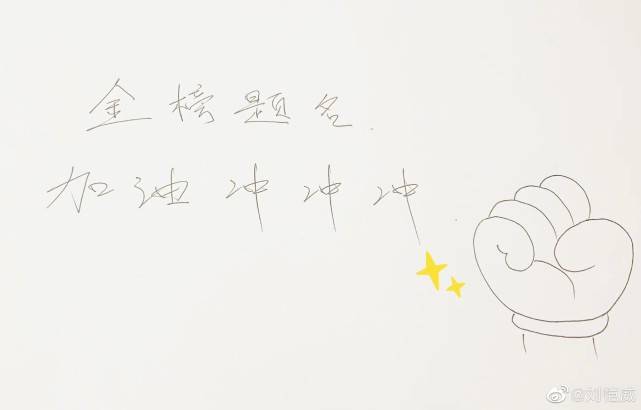 金榜题名.
加油冲冲冲.
@刘恺威